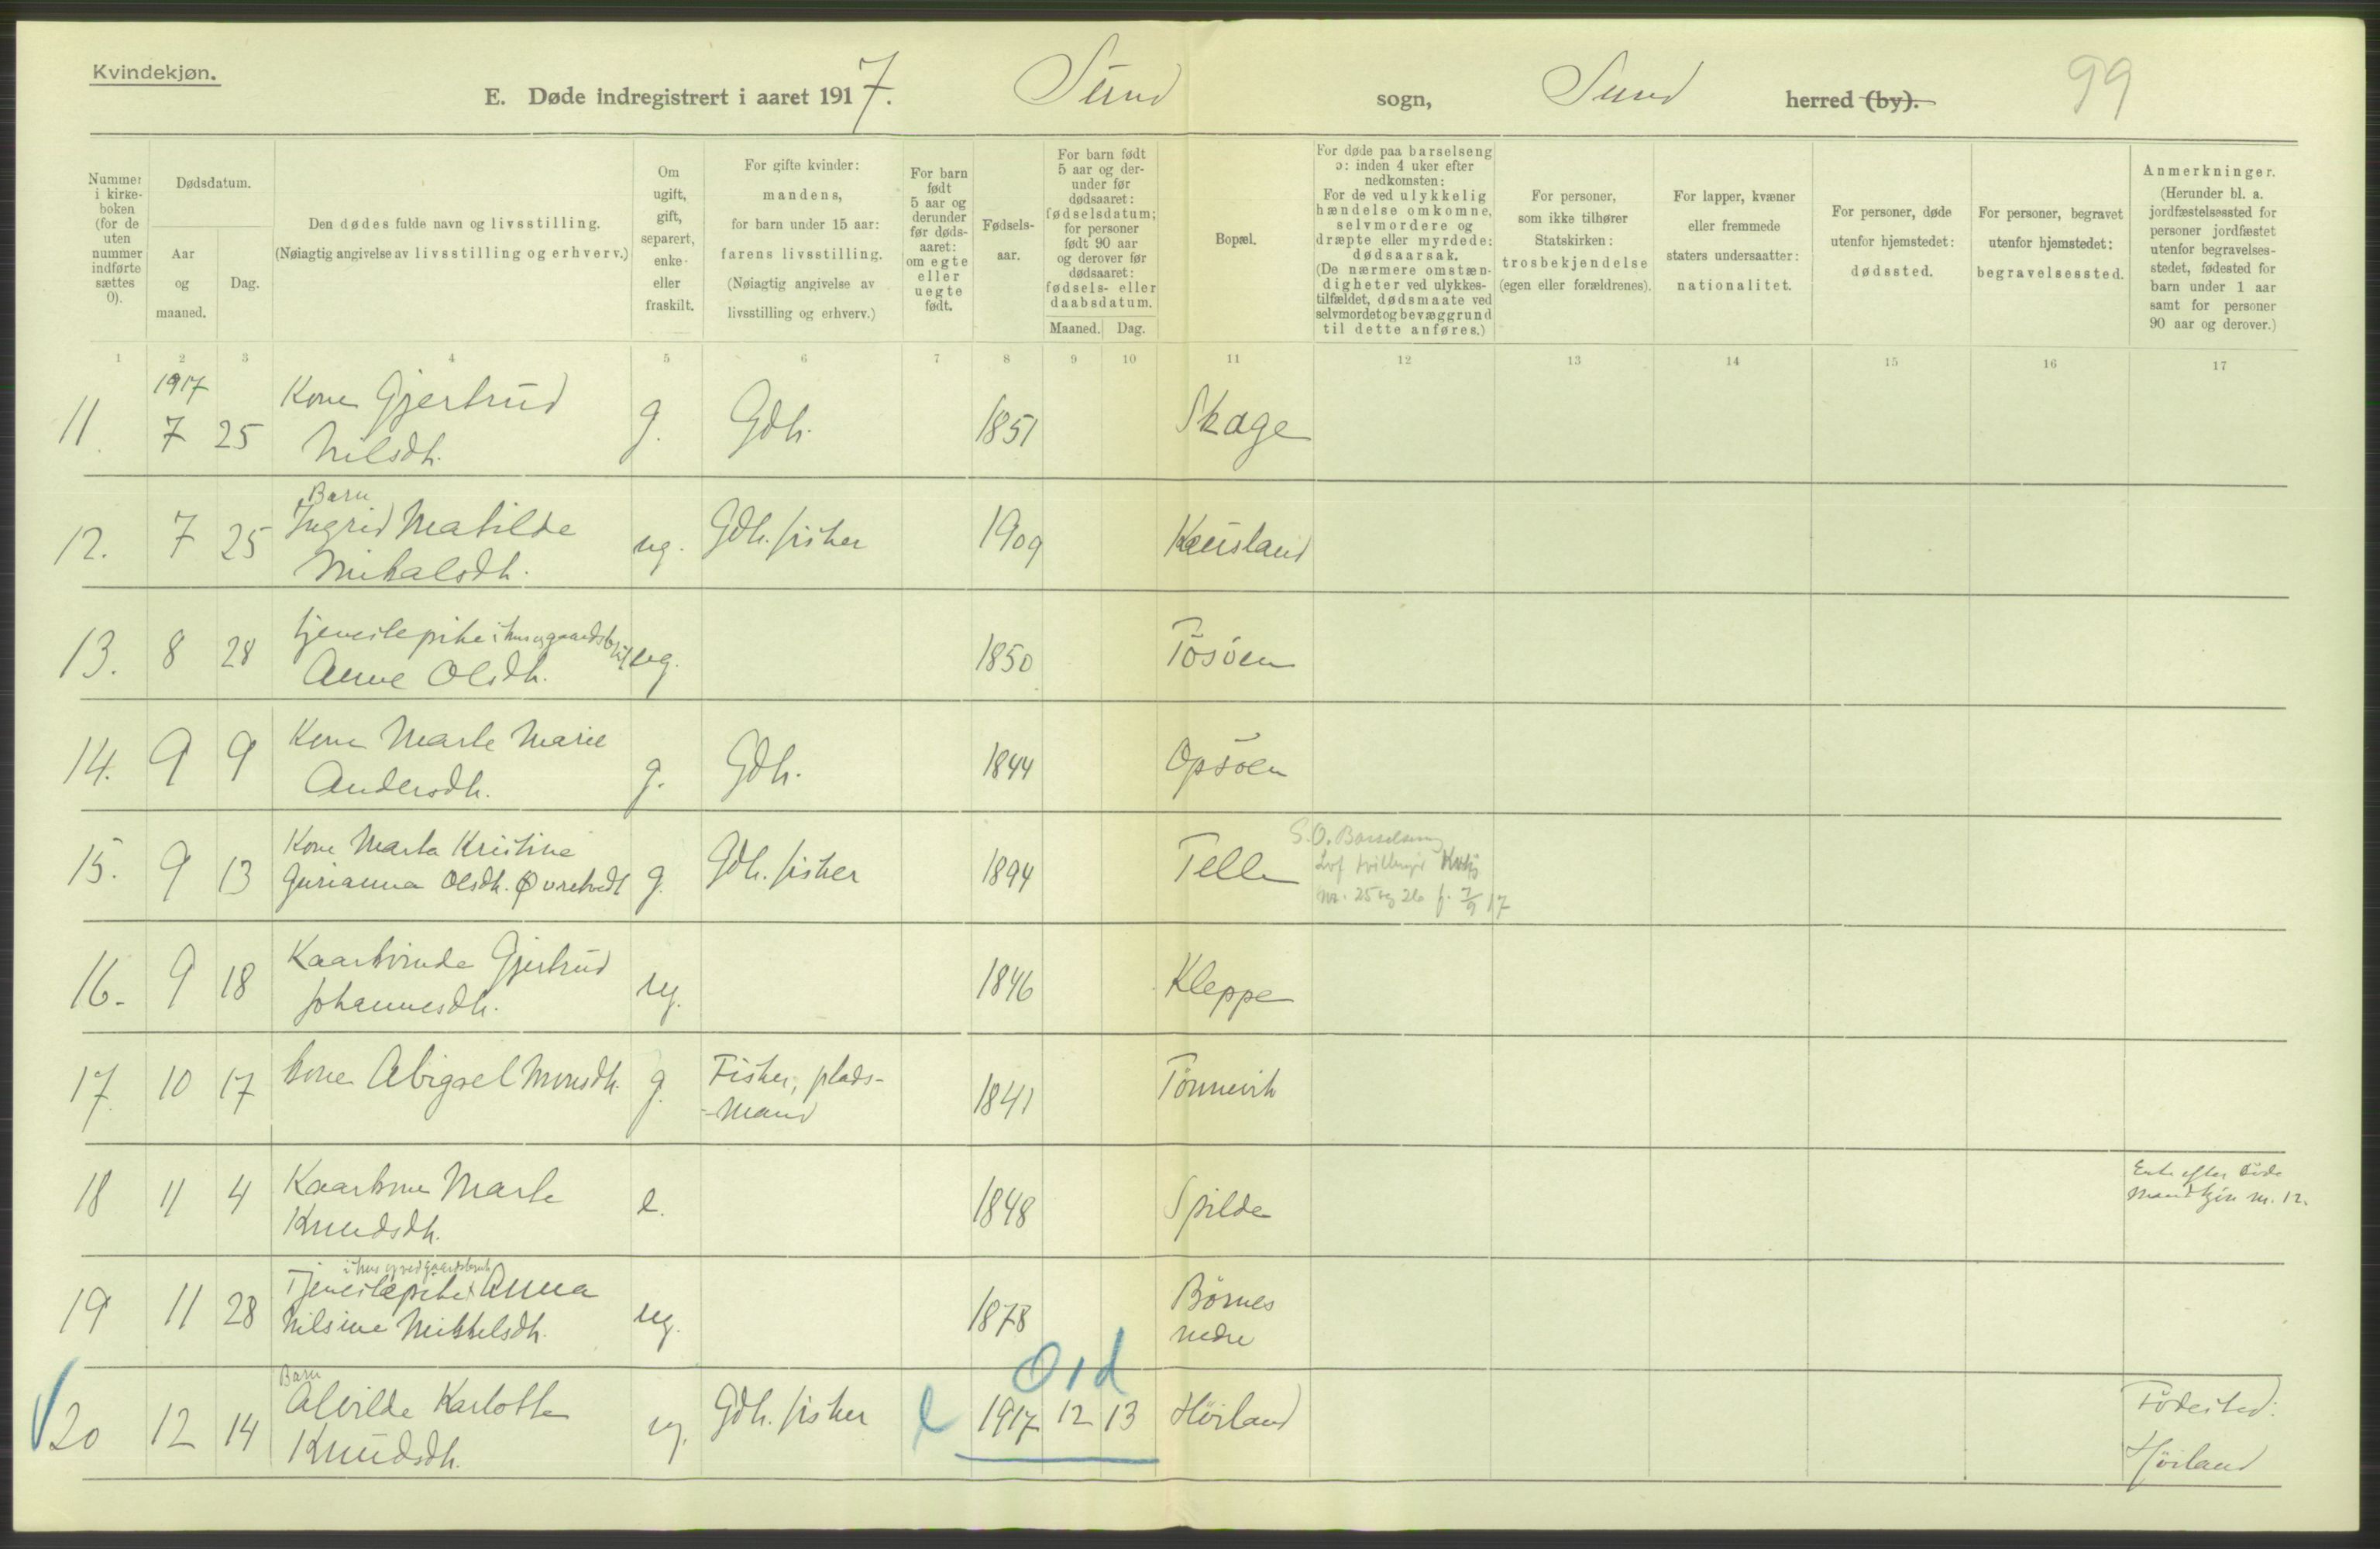 Kvindekjøn.
E. Døde indregistrert i aaret 1917. Sund sogn, Sund herred (by). 99
Nummer i kirke-boken (for de uten nummer indførte sættes 0).
Dødsdatum.
Aar og maaned.
Dag.
Den dødes fulde navn og livsstilling.
(Nøiagtig angivelse av livsstilling og erhverv.)
Om ugift, gift, separert, enke- eller fraskilt.
For gifte kvinder: mandens, for barn under 15 aar: farens livsstilling. (Nøiagtig angivelse av livsstilling og erhverv.)
For barn født 5 aar og derunder før døds-aaret: om egte eller uegte født.
Fødsels-aar.
For barn født 5 aar og der-under før dødsaaret: fødselsdatum; for personer født 90 aar og derover før dødsaaret: fødsels- eller daabsdatum.
Maaned. Dag.
Bopæl.
For døde paa barselseng ɔ: inden 4 uker efter nedkomsten: For de ved ulykkelig hændelse omkomne, selvmordere og dræpte eller myrdede: dødsaarsak. (De nærmere omstæn-digheter ved ulykkes-tilfældet, dødsmaate ved selvmordet og bevæggrund til dette anføres.)
For personer, som ikke tilhører Statskirken: trosbekjendelse (egen eller forældrenes).
For lapper, kvæner eller fremmede staters undersaatter: nationalitet.
For personer, døde utenfor hjemstedet: dødssted.
For personer, begravet utenfor hjemstedet: begravelsessted.
Anmerkninger. (Herunder bl. a. jordfæstelsessted for personer jordfæstet utenfor begravelses-stedet, fødested for barn under 1 aar samt for personer 90 aar og derover.)
1 2 3 4 5 6 7 8 9 10 11 12 13 14 15 16 17
1917
11 7 25 Kone Gjertrud Nilsdh. g. Gdh. 1851 Skage
12. 7 25 Barn Ingrid Matilde Mikalsdh. ug. Gdh. fisker 1909 Kausland
13. 8 28 tjenestepike i hus og gaardsbruk Anne Olsdh. ug. 1850 Tösöen
14. 9 9 Kone Marte Marie Andersdh. g. Gdh. 1844 Opsöen
15. 9 13 Kone Marta Kristine Gurianna Olsdh. Øvretvedt g. Gdh. fisker 1894 Telle S.O. Barselseng Lvf tvillinger Kvkj nr. 25 og 26 f. 7/9 17
16. 9 18 Kaarkvinde Gjertrud Johannesdh. ug. 1846 Kleppe
17. 10 17 kone Abigael Monsdh. g. Fisker, plads- -mand 1841 Tönnevik
18 11 4 Kaarkone Marte Knudsdh. e. 1848 Spilde Enke efter döde Mandkjön nr. 12.
19 11 28 Tjenestepike i hus og ved gaardsbruk Anna Nilsine Mikkelsdh. ug. 1878 Börnes nedre
20 12 14 Barn Alvilde Karlotte Knudsdh. ug. Gdh. fisker e 1917 12 13 01d Höiland Födested: Höiland